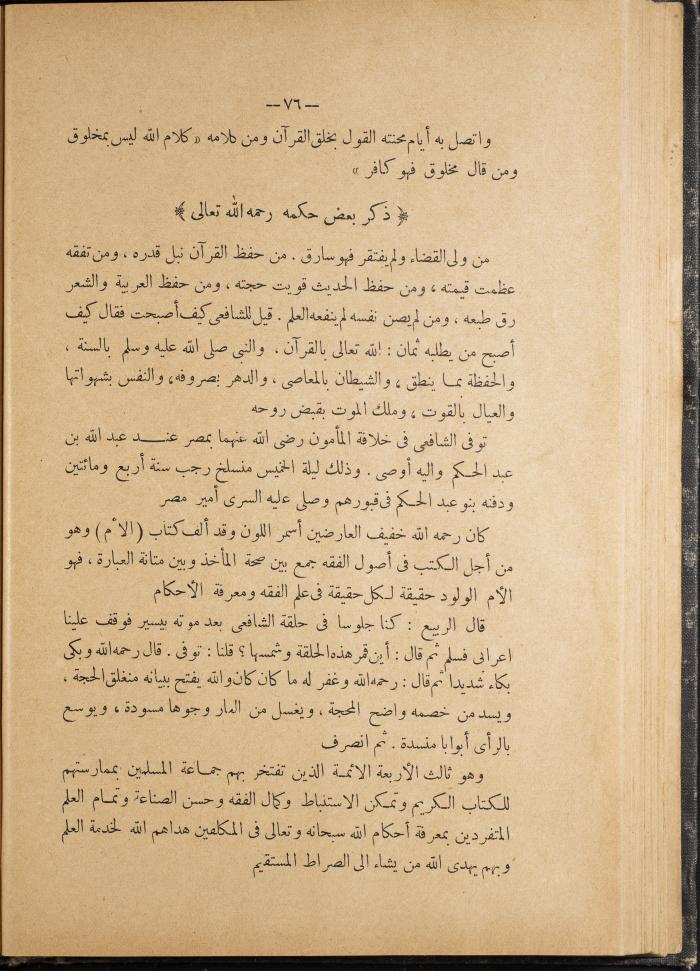 — ٧٦ —
واتصل به أيام محنته القول بخلق القرآن ومن كلامه « كلام الله ليس بمخلوق
ومن قال مخلوق فهو كافر »
﴿ ذكر بعض حكمه رحمه الله تعالى ﴾
من ولى القضاء ولم يفتقر فهو سارق . من حفظ القرآن نبل قدره ، ومن تفقه
عظمت قيمته ، ومن حفظ الحديث قويت حجته ، ومن حفظ العربية والشعر
رق طبعه ، ومن لم يصن نفسه لم ينفعه العلم . قيل للشافعى كيف أصبحت فقال كيف
أصبح من يطلبه ثمان : الله تعالى بالقرآن ، والنبى صلى الله عليه وسلم بالسنة ،
والحفظة بما ينطق ، والشيطان بالمعاصى ، والدهر بصروفه ، والنفس بشهواتها
والعيال بالقوت ، وملك الموت بقبض روحه
توفى الشافعى فى خلافة المأمون رضى الله عنهما بمصر عند عبد الله بن
عبد الحكم واليه أوصى . وذلك ليلة الخميس منسلخ رجب سنة أربع ومائتين
ودفنه بنو عبد الحكم فى قبورهم وصلى عليه السرى أمير مصر
كان رحمه الله خفيف العارضين أسمر اللون وقد ألف كتاب (الأم) وهو
من أجل الكتب فى أصول الفقه جمع بين صحة المأخذ وبين متانة العبارة ، فهو
الأم الولود حقيقة لكل حقيقة فى علم الفقه ومعرفة الأحكام
قال الربيع : كنا جلوسا فى حلقة الشافعى بعد موته بيسير فوقف علينا
اعرابى فسلم ثم قال : أين قمر هذه الحلقة وشمسها ؟ قلنا : توفى . قال رحمه الله وبكى
بكاء شديدا ثم قال : رحمه الله وغفر له ما كان كان والله يفتح ببيانه منغلق الحجة ،
ويسد من خصمه واضح المحجة ، ويغسل من العار وجوها مسودة ، ويوسع
بالرأى أبوابا منسدة . ثم انصرف
وهو ثالث الأربعة الائمة الذين تفتخر بهم جماعة المسلمين بممارستهم
للكتاب الكريم وتمكن الاستنباط وكمال الفقه وحسن الصناعة وتمام العلم
المتفردين بمعرفة أحكام الله سبحانه وتعالى فى المكلفين هداهم الله لخدمة العلم
وبهم يهدى الله من يشاء الى الصراط المستقيم